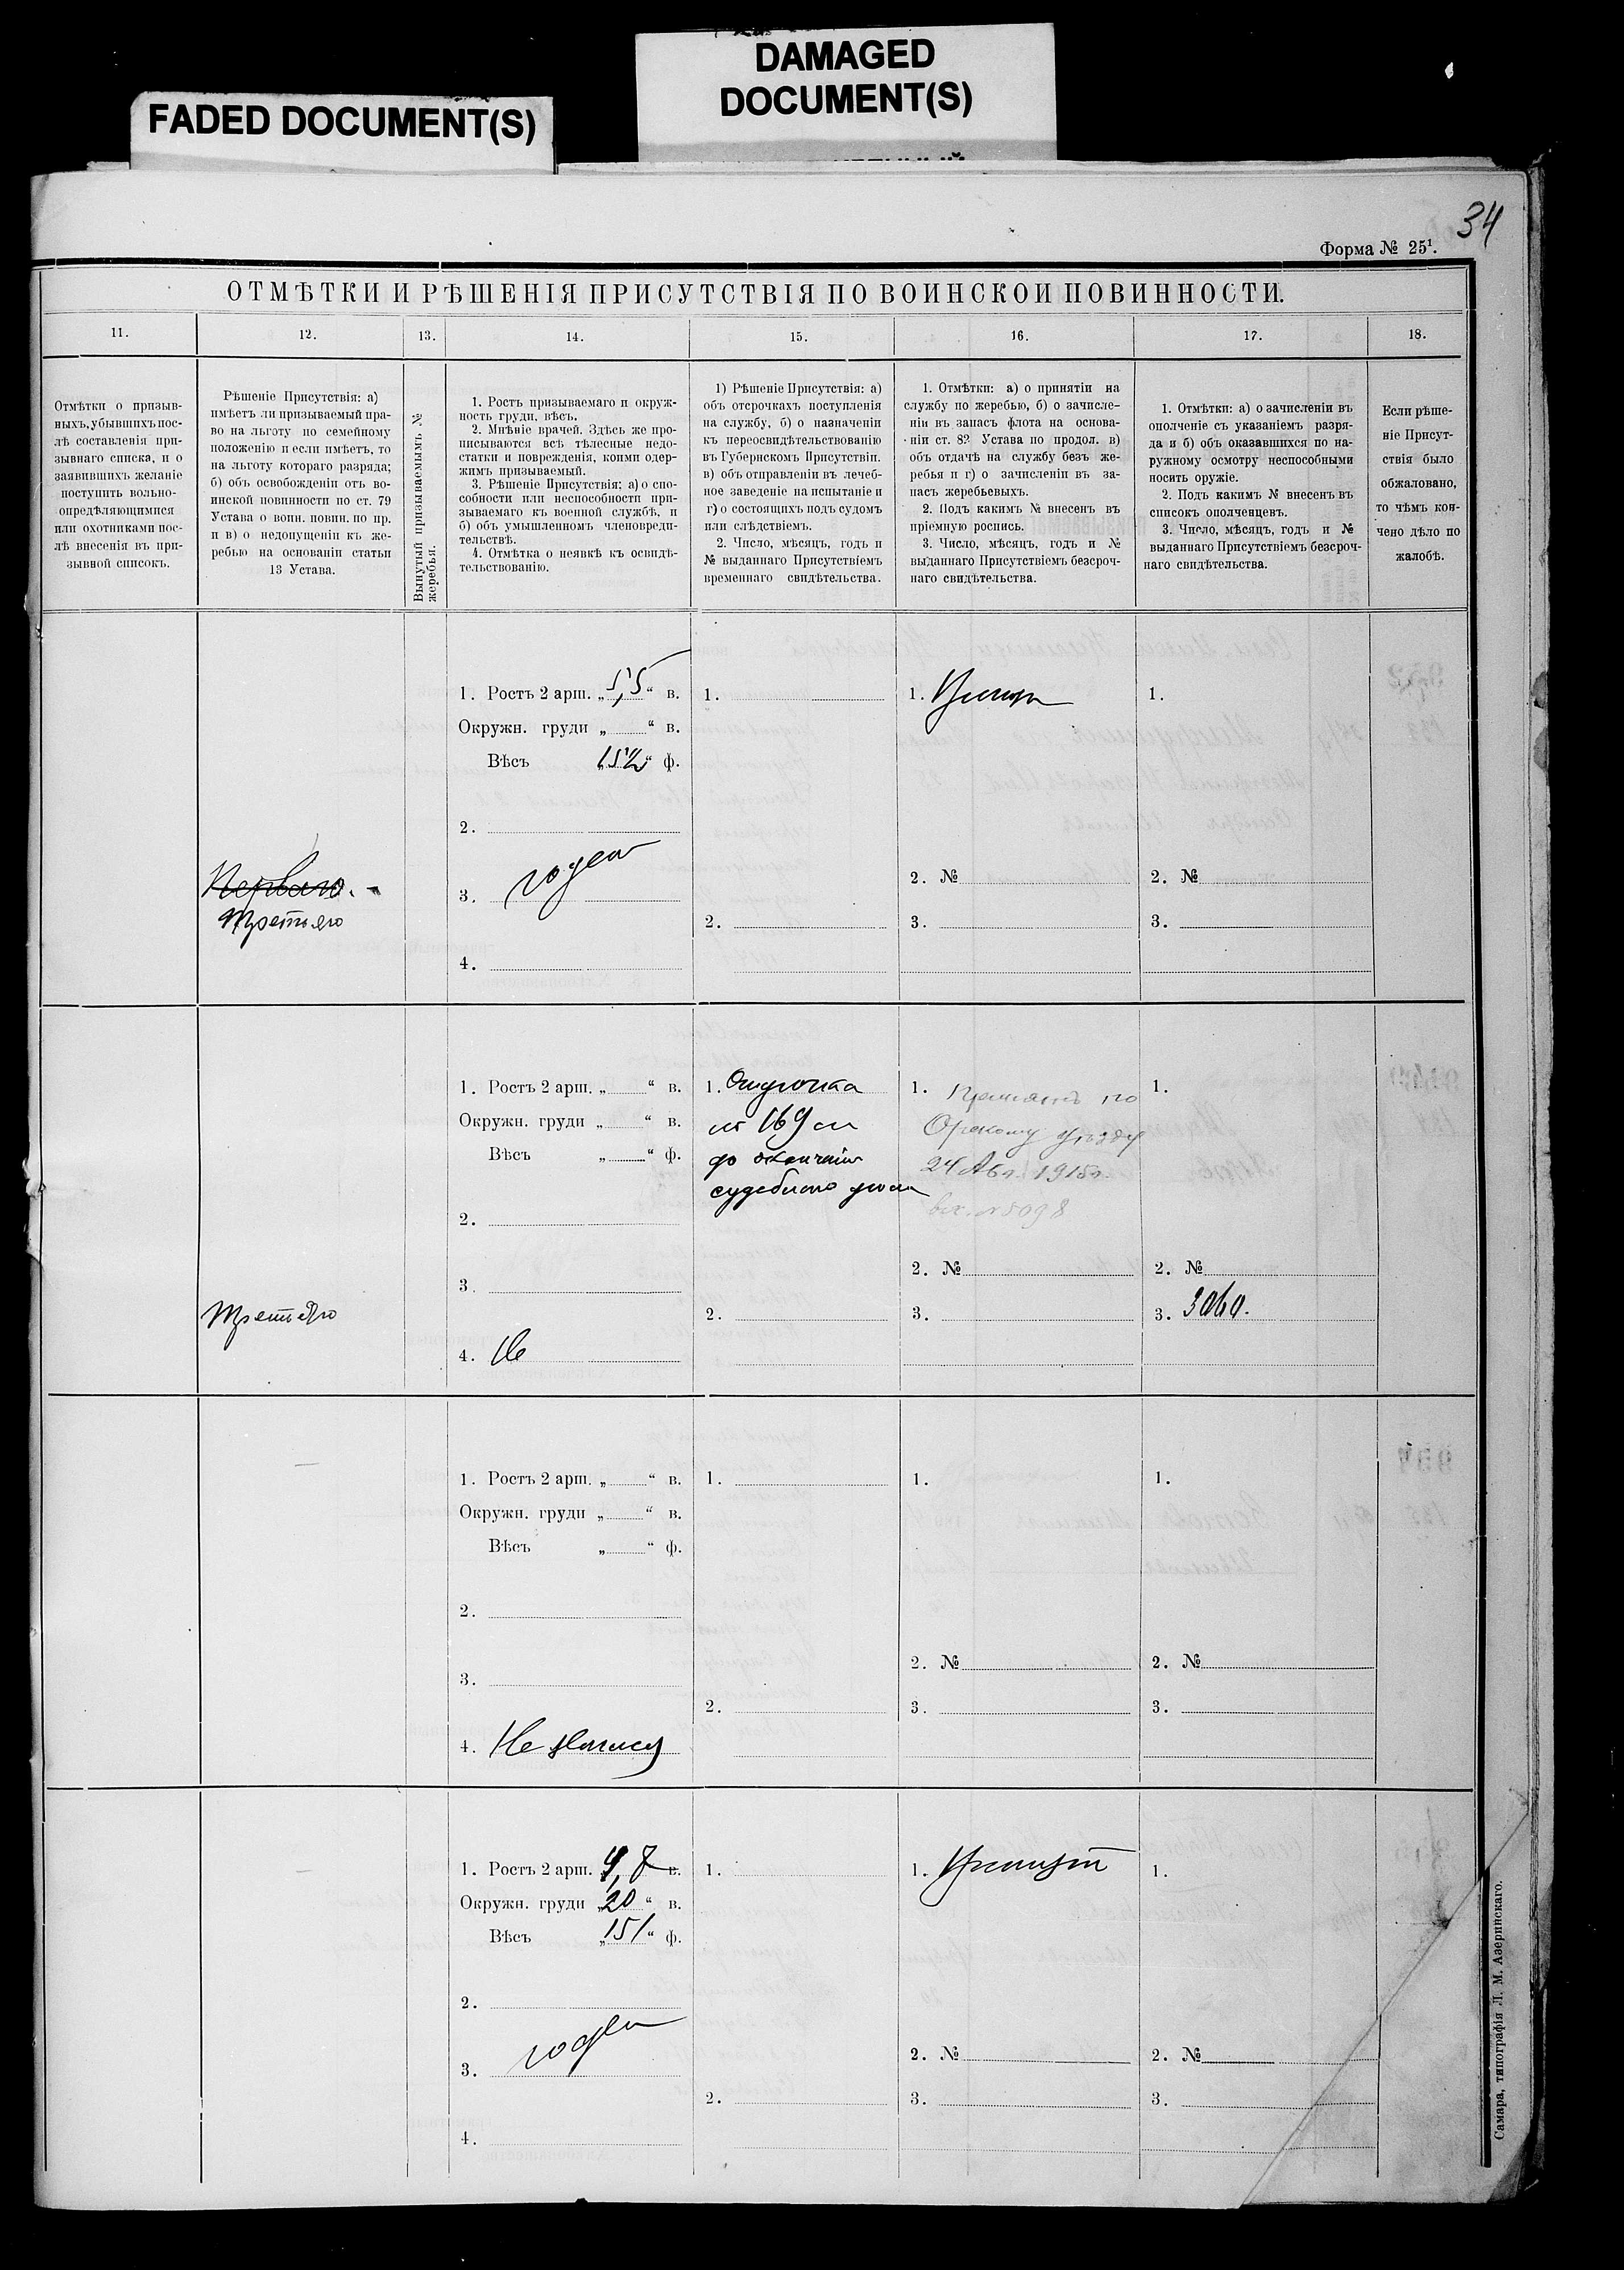 DAMAGED
DOCUMENT(S)
FADED DOCUMENT(S)
34
Форма № 25¹.
ОТМѢТКИ И РѢШЕНІЯ ПРИСУТСТВІЯ ПО ВОИНСКОЙ ПОВИННОСТИ.
11.
12.
13.
14.
15.
16.
17.
18.
Отмѣтки о призыв-
ныхъ, убывшихъ пос-
лѣ составленія при-
зывнаго списка, и о
заявившихъ желаніе
поступить вольно-
опредѣляющимися
или охотниками пос-
лѣ внесенія въ при-
зывной списокъ.
Рѣшеніе Присутствія: а)
имѣетъ ли призываемый пра-
во на льготу по семейному
положенію и если имѣетъ, то
на льготу котораго разряда;
б) объ освобожденіи отъ во-
инской повинности по ст. 79
Устава о воин. повин. по пр.
и в) о недопущеніи къ же-
ребью на основаніи статьи
13 Устава.
Вынутый призываемымъ №
жеребья.
1. Ростъ призываемаго и окруж-
ность груди, вѣсъ.
2. Мнѣніе врачей. Здѣсь же про-
писываются всѣ тѣлесные недо-
статки и поврежденія, коими одер-
жимъ призываемый.
3. Рѣшеніе Присутствія: а) о спо-
собности или неспособности при-
зываемаго къ военной службѣ, и
б) объ умышленномъ членовреди-
тельствѣ.
4. Отмѣтка о неявкѣ къ освидѣ-
тельствованію.
1) Рѣшеніе Присутствія: а)
объ отсрочкахъ поступленія
на службу, б) о назначеніи
къ переосвидѣтельствованію
въ Губернскомъ Присутствіи.
в) объ отправленіи въ лечеб-
ное заведеніе на испытаніе и
г) о состоящихъ подъ судомъ
или слѣдствіемъ.
2. Число, мѣсяцъ, годъ и
№ выданнаго Присутствіемъ
временнаго свидѣтельства.
1. Отмѣтки: а) о принятіи на
службу по жеребью, б) о зачисле-
ніи въ запасъ флота на основа-
ніи ст. 82 Устава по продол. в)
объ отдачѣ на службу безъ же-
ребья и г) о зачисленіи въ за-
пасъ жеребьевыхъ.
2. Подъ какимъ № внесенъ въ
пріемную роспись.
3. Число, мѣсяцъ, годъ и №
выданнаго Присутствіемъ безсроч-
наго свидѣтельства.
1. Отмѣтки: а) о зачисленіи въ
ополченіе съ указаніемъ разря-
да и б) объ оказавшихся по на-
ружному осмотру неспособными
носить оружіе.
2. Подъ какимъ № внесенъ въ
списокъ ополченцевъ.
3. Число, мѣсяцъ, годъ и №
выданнаго Присутствіемъ безсроч-
наго свидѣтельства.
Если рѣше-
ніе Присут-
ствія было
обжаловано,
то чѣмъ кон-
чено дѣло по
жалобѣ.
Перваго.
Третьяго
1. Ростъ 2 арш. „5,5“ в.
Окружн. груди „ “ в.
Вѣсъ „151½“ ф.
2.
3. годен
4.
1.
2.
1.
2. №
3.
1.
2. №
3.
Третьяго
1. Ростъ 2 арш. „ “ в.
Окружн. груди „ “ в.
Вѣсъ „ “ ф.
2.
3.
4. Не
1. Отсрочка
по 169 ст
до окончанія
судебного дѣла
2.
1. Принятъ по
Орскому уѣзду
24 Авг. 1915г.
вх. № 5098
2. №
3.
1.
2. №
3.
1. Ростъ 2 арш. „ “ в.
Окружн. груди „ “ в.
Вѣсъ „ “ ф.
2.
3.
4. Не явился
1.
2.
1.
2. №
3.
1.
2. №
3.
1. Ростъ 2 арш. „4,7 в.
Окружн. груди „20“ в.
Вѣсъ „151“ ф.
2.
3. годен
4.
1.
2.
1. Принят
2. №
3.
1.
2. №
3.
Самара, типографія Л. М. Азеринскаго.